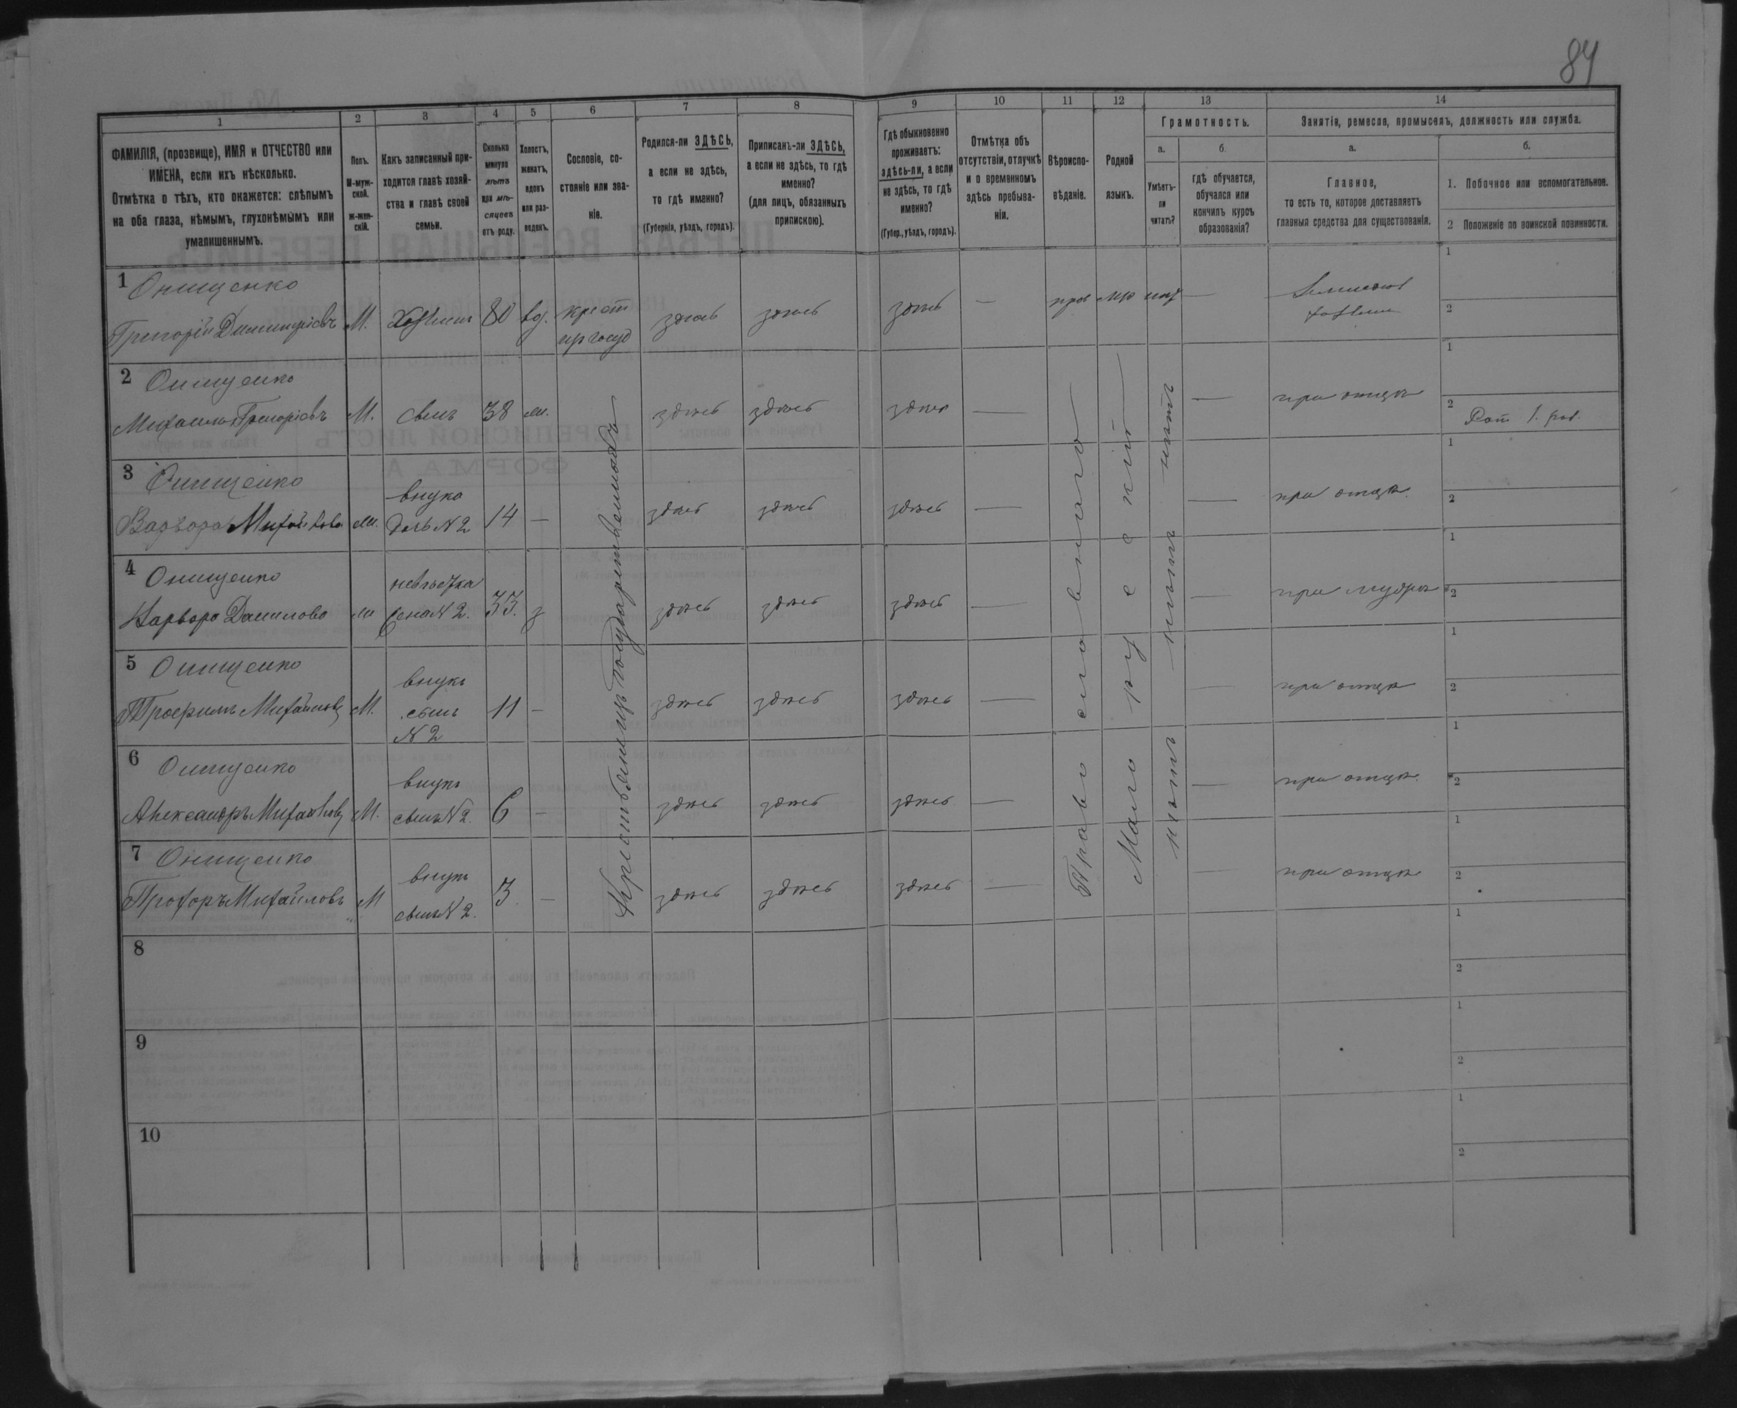 84
1 2 3 4 5 6 7 8 9 10 11 12 13 14
ФАМИЛІЯ, (прозвище), ИМЯ и ОТЧЕСТВО или
ИМЕНА, если ихъ нѣсколько.
Отмѣтка о тѣхъ, кто окажется: слѣпымъ
на оба глаза, нѣмымъ, глухонѣмымъ или
умалишеннымъ.
Полъ.
М-муж-
ской.
ж-жен-
скій.
Какъ записанный при-
ходится главѣ хозяй-
ства и главѣ своей
семьи.
Сколько
минуло
лѣтъ
или мѣ-
сяцевъ
отъ роду.
Холостъ,
женатъ,
вдовъ
или раз-
веденъ.
Сословіе, со-
стояніе или зва-
ніе.
Родился-ли ЗДѢСЬ,
а если не здѣсь,
то гдѣ именно?
(Губернія, уѣздъ, городъ).
Приписанъ-ли ЗДѢСЬ,
а если не здѣсь, то гдѣ
именно?
(для лицъ, обязанныхъ
припискою).
Гдѣ обыкновенно
проживаетъ:
здѣсь-ли, а если
не здѣсь, то гдѣ
именно?
(Губер., уѣздъ, городъ).
Отмѣтка объ
отсутствіи, отлучкѣ
и о временномъ
здѣсь пребыва-
ніи.
Вѣроиспо-
вѣданіе.
Родной
языкъ.
Грамотность.
а.
Умѣетъ-
ли
читать?
б.
гдѣ обучается,
обучался или
кончилъ курсъ
образованія?
Занятія, ремесло, промыселъ, должность или служба.
а.
Главное,
то есть то, которое доставляетъ
главныя средства для существованія.
б.
1. Побочное или вспомогательное.
2 Положеніе по воинской повинности.
1 Онищенко
Григорій Димитріевъ М. Хозяинъ 80 вд. крест здѣсь здѣсь здѣсь — прав мр нѣт —
2 Онищенко
Михаилъ Григоріевъ М. сынъ 38 ж. здѣсь здѣсь здѣсь — — при отцѣ
3 Онищенко
Варвара Михайлова ж. внука дочь N2 14 — здѣсь здѣсь здѣсь — — при отцѣ
4 Онищенко
Варвара Данилова ж невѣстка жена N2. 33. з здѣсь здѣсь здѣсь — — при мужѣ
5 Онищенко
Трофимъ Михайловъ М. внукъ сынъ N2 11 — здѣсь здѣсь здѣсь — — при отцѣ
6 Онищенко
Александръ Михайловъ М. внукъ сынъ N2. 6 — здѣсь здѣсь здѣсь — — при отцѣ
7 Онищенко
Прохоръ Михайловъ М внукъ сынъ N2. 3. — здѣсь здѣсь здѣсь — — при отцѣ
Православного
Малорусскій
нѣтъ нѣтъ нѣтъ
8
9
10